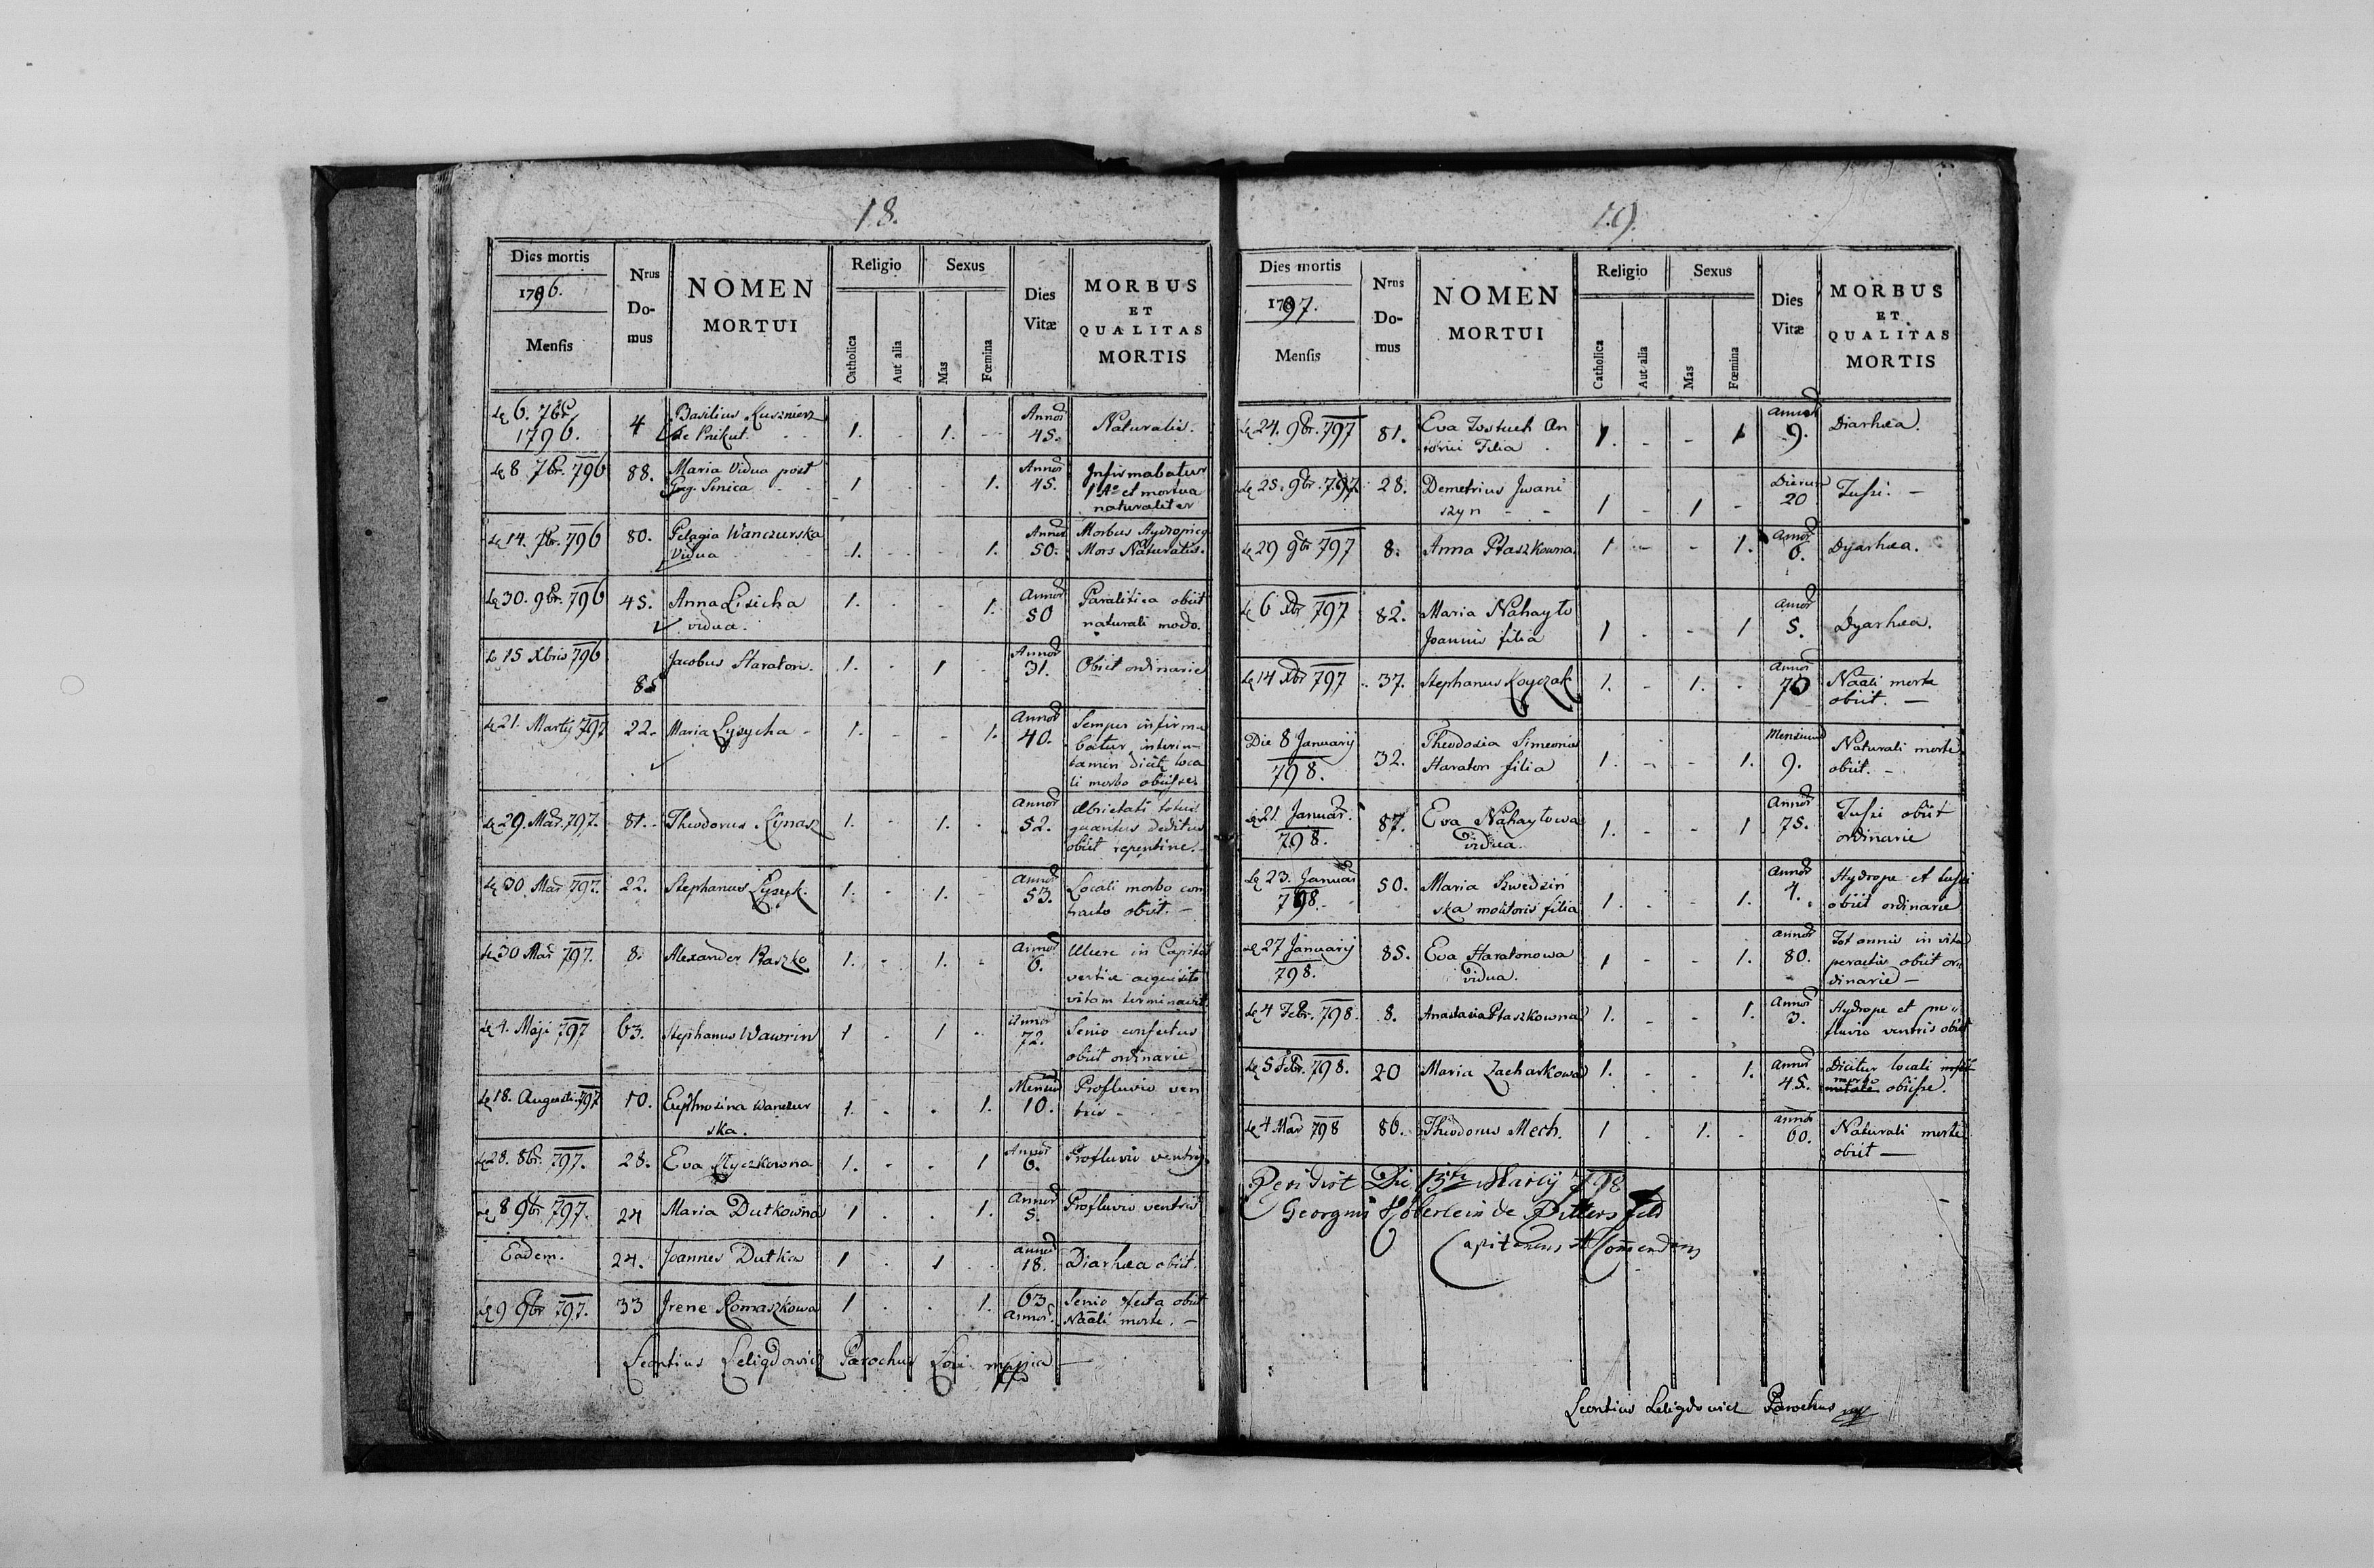 18.
Dies mortis
1796.
Mensis
Nrus
Do-
mus
NOMEN
MORTUI
Religio
Catholica
Aut alia
Sexus
Mas
Fœmina
Dies
Vitæ
MORBUS
ET
QUALITAS
MORTIS
6. 7br
1796. 4 Basilius Kusznierz
de Prikut. 1. - 1. - Annor
45. Naturalis.
8 7br. 796 88. Maria Vidua post
Greg. Sinica 1 - - 1. Annor
45. Infirmabatur
et mortua
naturaliter
14. 7br. 796 80. Pelagia Wanczurska
Vidua 1. - - 1. Annor
50. Morbus Hydropicg
Mors Naturalis.
30. 9br. 796 45. Anna Lisicha
vidua. 1. - - 1. Annor
50 Paralitica obiit
naturali modo.
15 Xbris 796 85 Jacobus Haraton. 1. - 1 - Annor
31. Obiit ordinarie
21. Martij 797 22. Maria Lysycha - 1. - - 1. Annor
40. Semper infirma
batur, interim
tamen loca
li morbo obiisse.
29. Mar. 797. 81. Theodorus Kynasz 1. - 1. - Annor
52. Ebrietati totus
quantus deditus
obiit repentine.
30 Mar 797. 22. Stephanus Lysyk. 1. - 1. - Annor
53. Locali morbo con
tracto obiit. -
30 Mar 797. 8. Alexander Ptaszko 1. - 1. - Annor
6. Ulcere in Capitis
vertice acquisito
vitam terminavit.
4. Maji 797 63. Stephanus Wawrin 1 - 1 - Annor
72. Senio confectus
obiit ordinarie
18. Augusti 797 10. Euphrosina Wanczur
ska. 1. - - 1. Mensiu
10. Profluvio ven
tris -
28. 8br. 797. 28. Eva Myczkowna 1. - - 1 Annor
6. Profluvio ventris
8 9br 797. 24 Maria Dutkowna 1 . . 1. Annor
5. Profluvio ventris
Eadem. 24. Joannes Dutka 1 . 1 . Annor
18. Diarhæa obiit.
9 9br 797. 33 Irene Romaszkowa 1 . . 1. 63
Annor. Senio obiit
Naāli morte. -
Leontius Leligdowicz Parochus mppia
19.
Dies mortis
1797.
Mensis
Nrus
Do-
mus
NOMEN
MORTUI
Religio
Catholica
Aut alia
Sexus
Mas
Fœmina
Dies
Vitæ
MORBUS
ET
QUALITAS
MORTIS
24. 9br. 797 81. Eva An
tonii Filia 1. - - 1 Annor
9. Diarhæa.
25. 9br. 797 28. Demetrius Iwani
szyn - - 1 - 1 - Dierum
20 Tussi. -
29 9br 797 8. Anna Ptaszkowna 1 - - 1. Annor
6. Dyarhæa.
6 Xbr 797 82. Maria Nahayło
Joannis filia 1 - - 1 Annor
5. Dyarhæa.
14 Xbr 797 37. Stephanus Koyczak 1. - 1. - Annor
70 Naāli morte
obiit. -
Die 8 Januarij
798. 32. Theodosia Simeonis
Haraton filia 1. - - 1. Mensium
9. Naturali morte
obiit. -
21. Januar.
798. 87. Eva Nahaytowa
vidua. 1. - - 1 Annor
75. Tussi obiit
ordinarie
23. Januar
798. 50. Maria Szwedzin
ska molitoris filia 1. - - 1. Annor
4. Hydrope et tussi
obiit ordinarie
27 Januarij
798. 85. Eva Haratonowa
vidua. 1 - - 1. Annor
80. Tot annis in vita
peractis obiit or
dinarie -
4 Febr. 798. 8. Anastasia Ptaszkowna 1. - - 1. Annor
3. Hydrope et pro
fluvio ventris obiit
5 Febr. 798. 20 Maria Zacharkowa 1. - - 1. Annor
45. Dicitur locali
morbo obiisse.
4 Mar 798 86. Theodorus Mech. 1 - 1. - Annor
60. Naturali morte
obiit -
Die 13 Martij 798
Georgius Höberlein de Pittersfeld
Capitaneus Commendans
Leontius Leligdowicz Parochus